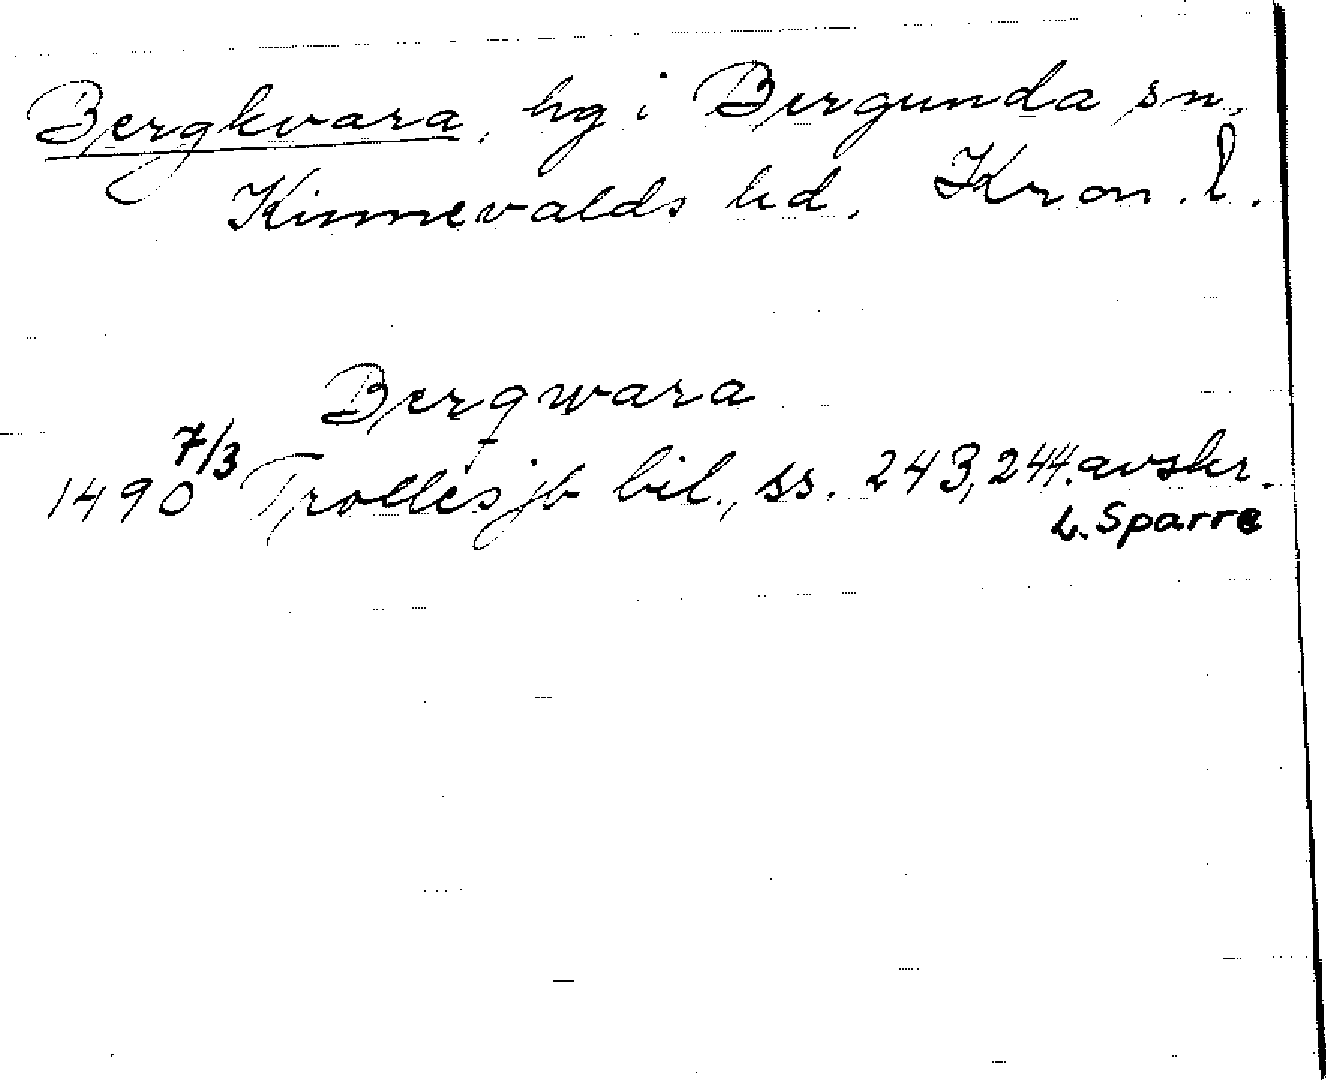 Bergkvara, hg i Bergunda sn,
Kinnevalds hd, Kron. l.
Bergqwara
1490 7/3 Trolles jb bil., ss. 243, 244. avskr.
L. Sparre